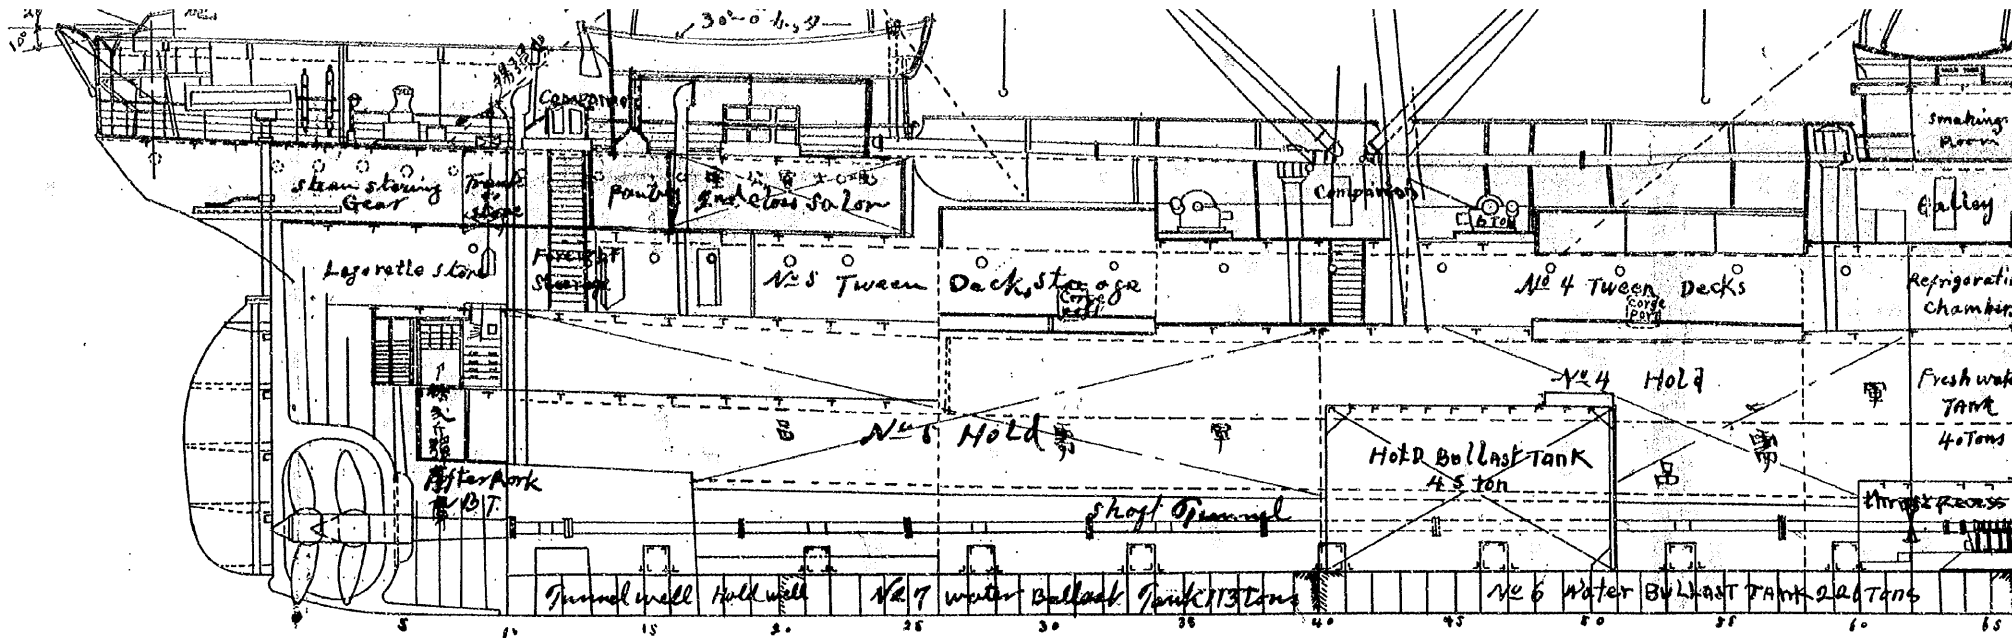 30'-0"
10°
Companion
smoking
Room
steam stering
Gear
Pantry
2nd class Salon
Companion
6 Ton
Galley
Lazarette store
Freight
Steerage
No 5 Tween Decks, steerage
Corge
port
No 4 Tween Decks
corge
port
Refrigerati
Chamber
No 4 Hold
軍
Fresh wate
TANK
40 Tons
No 5 Hold
軍
HOLD Ballast Tank
45 ton
AfterPeak
W.B.T.
shaft Tunnel
thrust Recess
Tunnel well
Hold well
No 7 water Ballast Tank 113 Tons
No 6 Water BULLAST TANK
Tons
5
10
15
20
25
30
35
40
45
50
55
60
65